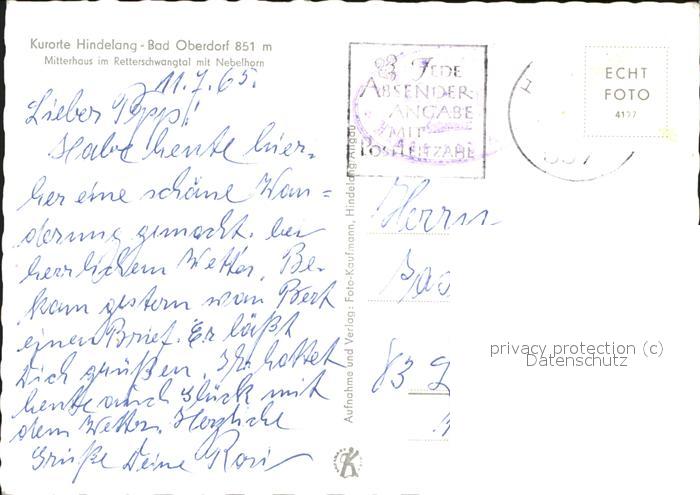 Kurorte Hindelang - Bad Oberdorf 851 m
Mitterhaus im Retterschwangtal mit Nebelhorn
11.7.65.
Lieber Pepp!
Habe heute hier-
her eine schöne Wan=
derung gemacht. bei
herrlichem Wetter. Be-
kam gestern von Bert
einen Brief. Er läßt
Dich grüßen. Ihr hattet
heute auch Glück mit
dem Wetter. Herzliche
Grüße Deine Rosi
Aufnahme und Verlag: Foto-Kaufmann, Hindelang/Allgäu
JEDE
ABSENDER-
ANGABE
MIT
POSTLEITZAHL
ECHT
FOTO
4127
Herrn
83
privacy protection (c)
Datenschutz